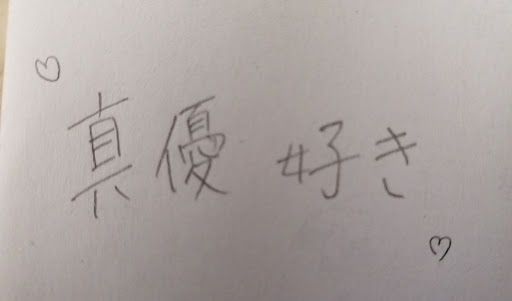 真優 好き